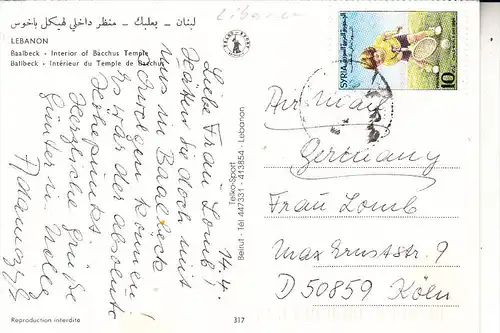 لبنان - بعلبك - منظر داخلي لهيكل باخوس
LEBANON
Baalbeck - Interior of Bacchus Temple
Balibeck - Intérieur du Temple de Bacchus
Liban
14.4.
Liebe Frau Lomb!
Hätten Sie doch mit
uns in Baalbek
können!
Es war der absolute
Höhepunkt
Herzliche Grüße
Günter u.
Telko-Sport
Beirut - Tél 447331 - 413854 - Lebanon
SYRIA
10
Air mail
Germany
Frau Lomb
Max Ernststr. 9
D 50859 Köln
Reproduction interdite
317